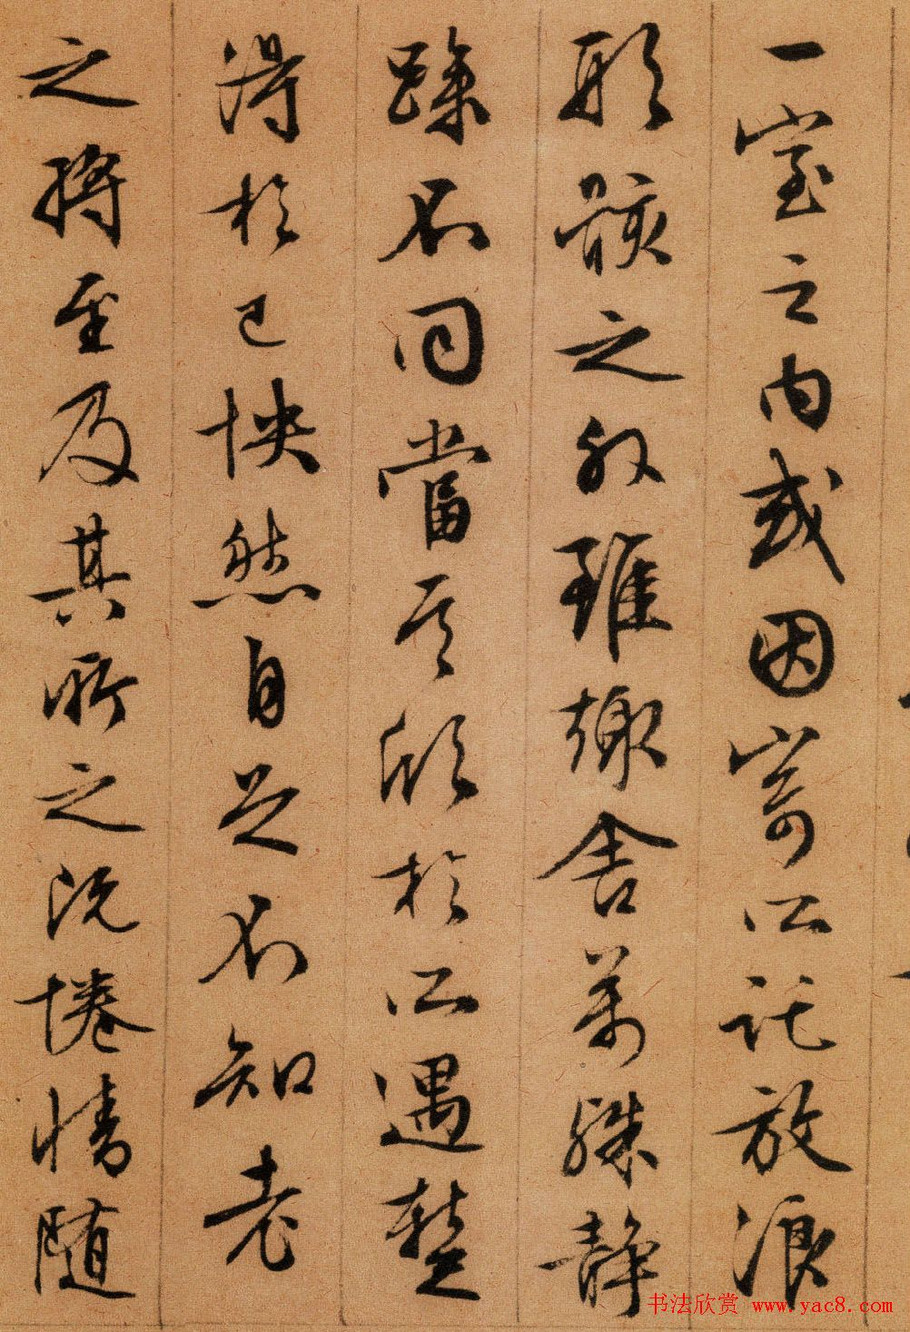 一室之内或因寄所託放浪
形骸之外雖趣舍萬殊靜
躁不同當其欣於所遇蹔
得於己怏然自足不知老
之將至及其所之既惓情随
书法欣赏 www.yac8.com